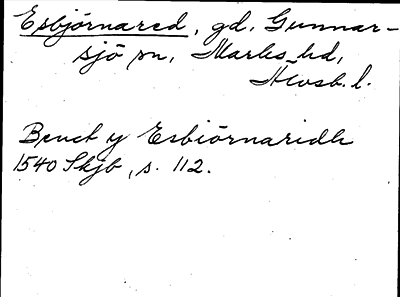 Esbjörnared, gd. Gunnar-
sjö sn, Marks hd,
Älvsb. l.
Bencht y Esbiörnaridh
1540 Skjb, s. 112.